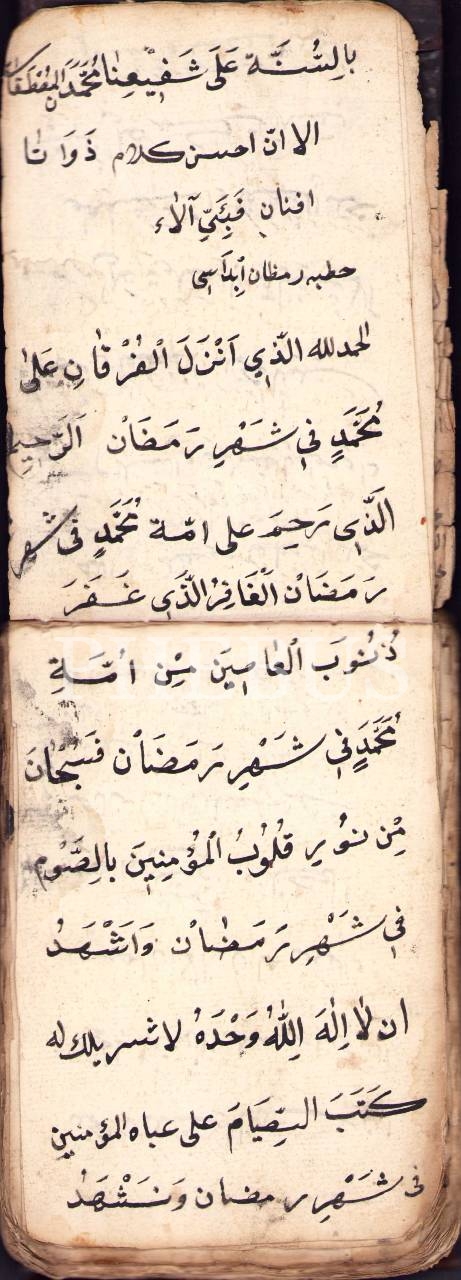 بالسُّنَّة عَلَى شَفِيعِنَا مُحَمَّدَن المُصْطَفَى
الا انّ احسن كلام ذَوَاتا
افنان فَبِئَيِّ آلَاء
خطبه رمظان اِبداسى
الحمد لله الَّذِي اَنْزَلَ الْفُرْقَانِ عَلَى
مُحَمَّدٍ فِي شَهْرِ رَمَضَانْ اَلرَّحِيمِ
اَلَّذِى رَحِمَ على امّة مُحَمَّدٍ فى شهر
رَمَضَانْ اَلْغَافِرْ الَّذَى غَفَرَ
ذُنُوبَ الْعَاصِيَن مِنْ اُمَّةِ
مُحَمَّدٍ فِي شَهْرِ رَمَضَانْ فَسُبْحَانَ
مِنْ نوُرِ قلُوُبُ الْمُؤْمِنِيَن بالِصَّوْم
فِي شَهْرِ رَمَضَانْ وَاَشْهَدُ
ان لَا اِلٰهَ اِللهُ وَحْدَهُ لا شريك له
كَتَبَ الصِّيَامَ على عباه المؤمنين
فى شَهْرِ رمضان وَنَشْهَدُ
PHEBUS